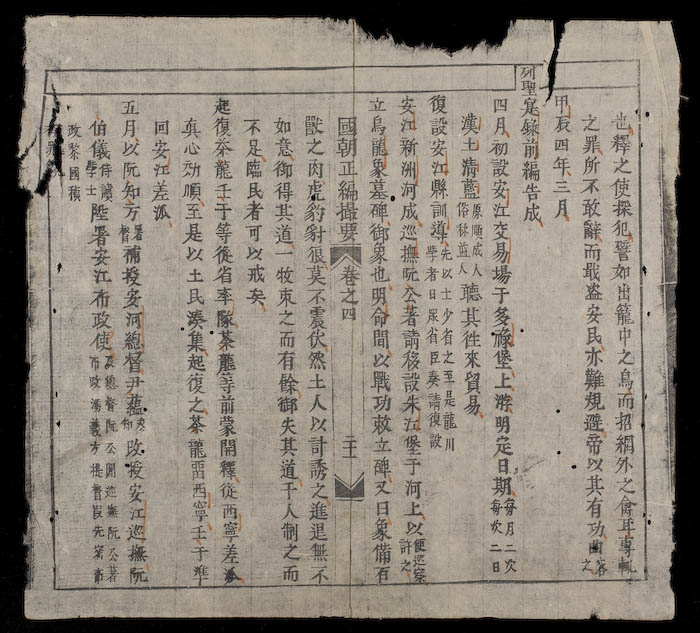 也釋之使探犯譬如出籠中之鳥而招網外之禽耳專輒
之罪所不敢辭而戢盜安民亦難規避帝以其有功曲容之
甲辰四年三月
列聖寔錄前編告成
四月初設安江交易場于多祿堡上游明定日期每月二次每次二日
漢土清藍原順成人俗稱藍人聽其往來貿易
復設安江縣訓導先以士少省之至是龍川學者日省臣奏請復設
安江新洲河成巡撫阮公著請移設朱五堡于河上以便巡察許之
立烏龍象墓碑御象也明命間以戰功敕立碑又曰象備百
國朝正編撮要 卷之四
獸之肉虎豹豺狼莫不震伏然土人以計誘之進退無不
如意御得其道一牧束之而有餘御失其道千人制之而
不足臨民者可以戒矣
起復茶龍壬于等從省率隊茶龍等前蒙開釋從西寧差派
真心効順至是以土民湊集起復之茶龍畱西寧壬于準
回安江差派
五月以阮知方署督補授安河總督尹蘊改授安江巡撫阮
伯儀侍讀學士陞署安江布政使總督阮公閒巡撫阮公著布政馮義方提督段先案
政黎國楨